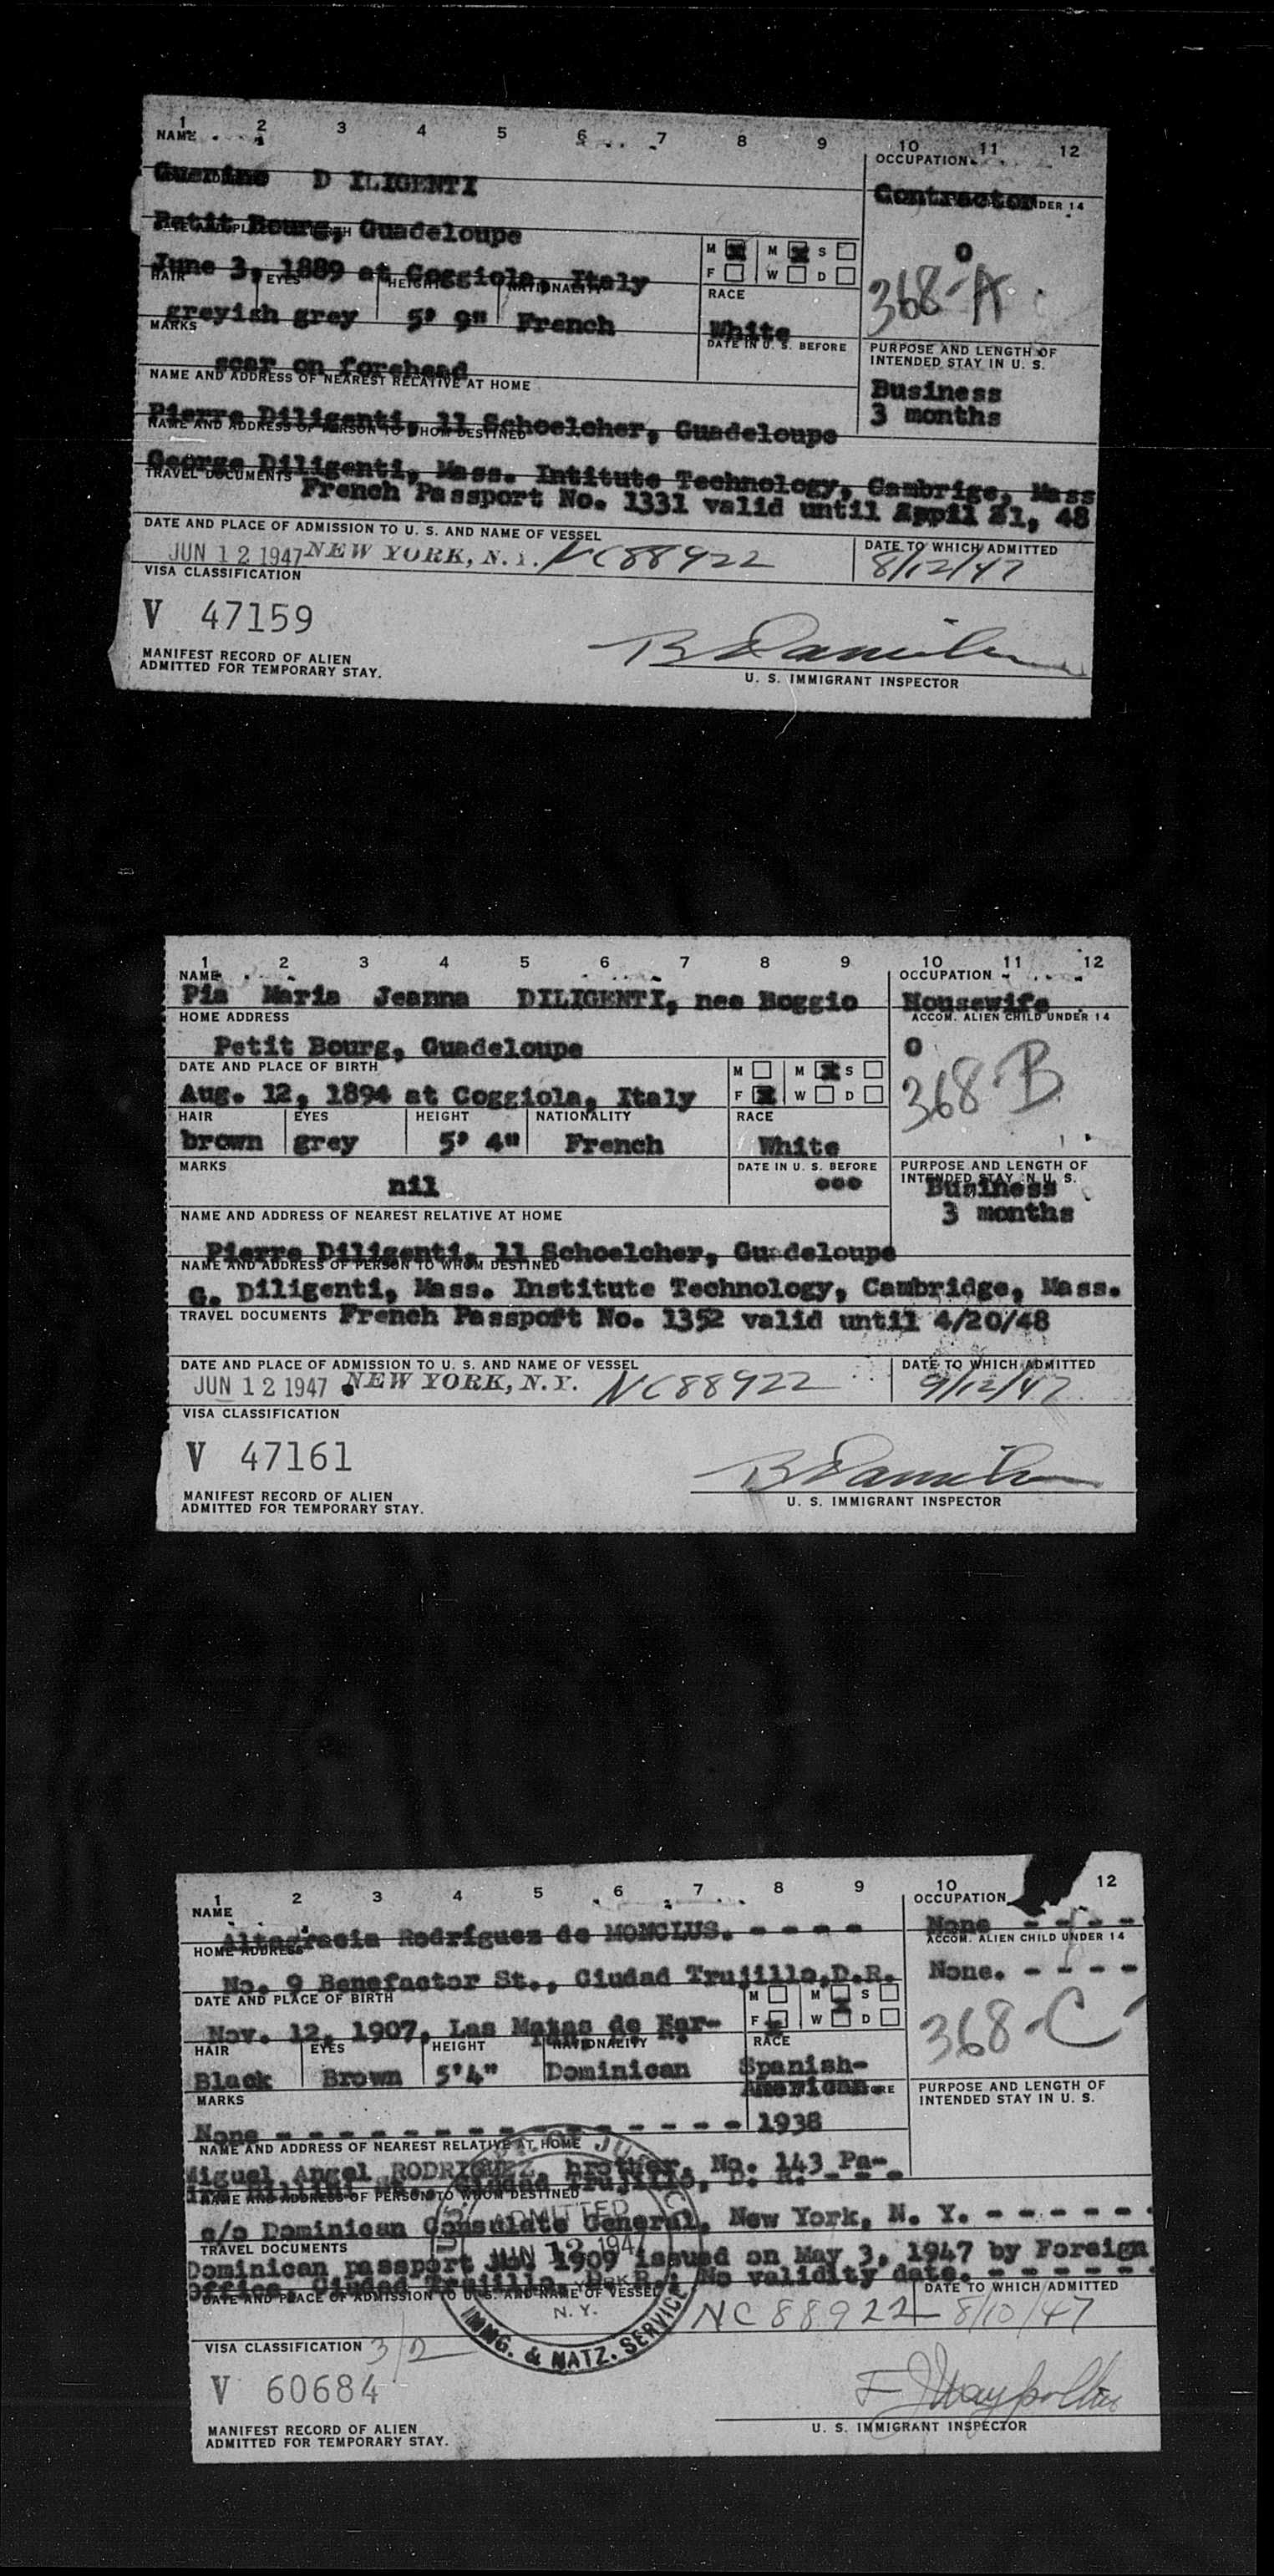 1 2 3 4 5 6 7 8 9 10 11 12
NAME OCCUPATION
Guerino D ILIGENTI Contractor
DER 14
Petit Bourg, Guadeloupe
M M S
0
June 3, 1889 at Coggiola, Italy
F W D
368-A
HAIR EYES HEIGHT NATIONALITY RACE
greyish grey 5' 9" French White
MARKS DATE IN U. S. BEFORE PURPOSE AND LENGTH OF
INTENDED STAY IN U. S.
scar on forehead
NAME AND ADDRESS OF NEAREST RELATIVE AT HOME
Business
3 months
Pierre Diligenti, 11 Schoelcher, Guadeloupe
NAME AND ADDRESS OF PERSON TO WHOM DESTINED
George Diligenti, Mass. Intitute Technology, Cambrige, Mass
TRAVEL DOCUMENTS French Passport No. 1331 valid until 21, 48
DATE AND PLACE OF ADMISSION TO U. S. AND NAME OF VESSEL DATE TO WHICH ADMITTED
JUN 12 1947 NEW YORK, N.Y. NC88922 8/12/47
VISA CLASSIFICATION
V 47159
MANIFEST RECORD OF ALIEN
ADMITTED FOR TEMPORARY STAY.
U. S. IMMIGRANT INSPECTOR
1 2 3 4 5 6 7 8 9 10 11 12
NAME OCCUPATION
Pia Maria Jeanna DILIGENTI, nee Boggio Housewife
HOME ADDRESS ACCOM. ALIEN CHILD UNDER 14
Petit Bourg, Guadeloupe 0
DATE AND PLACE OF BIRTH M M S
368-B
Aug. 12, 1894 at Coggiola, Italy F W D
HAIR EYES HEIGHT NATIONALITY RACE
brown grey 5' 4" French White
MARKS DATE IN U. S. BEFORE PURPOSE AND LENGTH OF
INTENDED STAY IN U. S.
nil ooo Business
3 months
NAME AND ADDRESS OF NEAREST RELATIVE AT HOME
Pierre Diligenti, 11 Schoelcher, Guadeloupe
NAME AND ADDRESS OF PERSON TO WHOM DESTINED
G. Diligenti, Mass. Institute Technology, Cambridge, Mass.
TRAVEL DOCUMENTS French Passport No. 1352 valid until 4/20/48
DATE AND PLACE OF ADMISSION TO U. S. AND NAME OF VESSEL DATE TO WHICH ADMITTED
JUN 12 1947 NEW YORK, N.Y. NC88922 9/12/47
VISA CLASSIFICATION
V 47161
MANIFEST RECORD OF ALIEN
ADMITTED FOR TEMPORARY STAY.
U. S. IMMIGRANT INSPECTOR
1 2 3 4 5 6 7 8 9 10 12
NAME OCCUPATION
Altagracia Rodríguez de MONCLUS. - - - - None - - - -
HOME ADDRESS ACCOM. ALIEN CHILD UNDER 14
No. 9 Benefactor St., Ciudad Trujillo, D.R. None. - - - -
DATE AND PLACE OF BIRTH M M S
368-C
Nov. 12, 1907, Las Matas de Far- F W D
HAIR EYES HEIGHT NATIONALITY RACE
Black Brown 5'4" Dominican Spanish-
American
MARKS PURPOSE AND LENGTH OF
INTENDED STAY IN U. S.
None - - - - - - - - - - - - - 1938
NAME AND ADDRESS OF NEAREST RELATIVE AT HOME
Miguel Angel RODRIGUEZ, brother, No. 143 Pa-
Trujillo, D. R. - - -
NAME AND ADDRESS OF PERSON TO WHOM DESTINED
c/o Dominican Consulate General, New York, N. Y. - - - - - -
TRAVEL DOCUMENTS
Dominican passport No. 1909 issued on May 3, 1947 by Foreign
Office, Ciudad Trujillo, D. R.; No validity date. - - - - -
DATE AND PLACE OF ADMISSION TO U. S. AND NAME OF VESSEL DATE TO WHICH ADMITTED
ADMITTED
JUN 12 194
N. Y.
IMMG. & NATZ. SERVICE
NC88922 8/10/47
VISA CLASSIFICATION 3/2
V 60684
MANIFEST RECORD OF ALIEN
ADMITTED FOR TEMPORARY STAY.
U. S. IMMIGRANT INSPECTOR